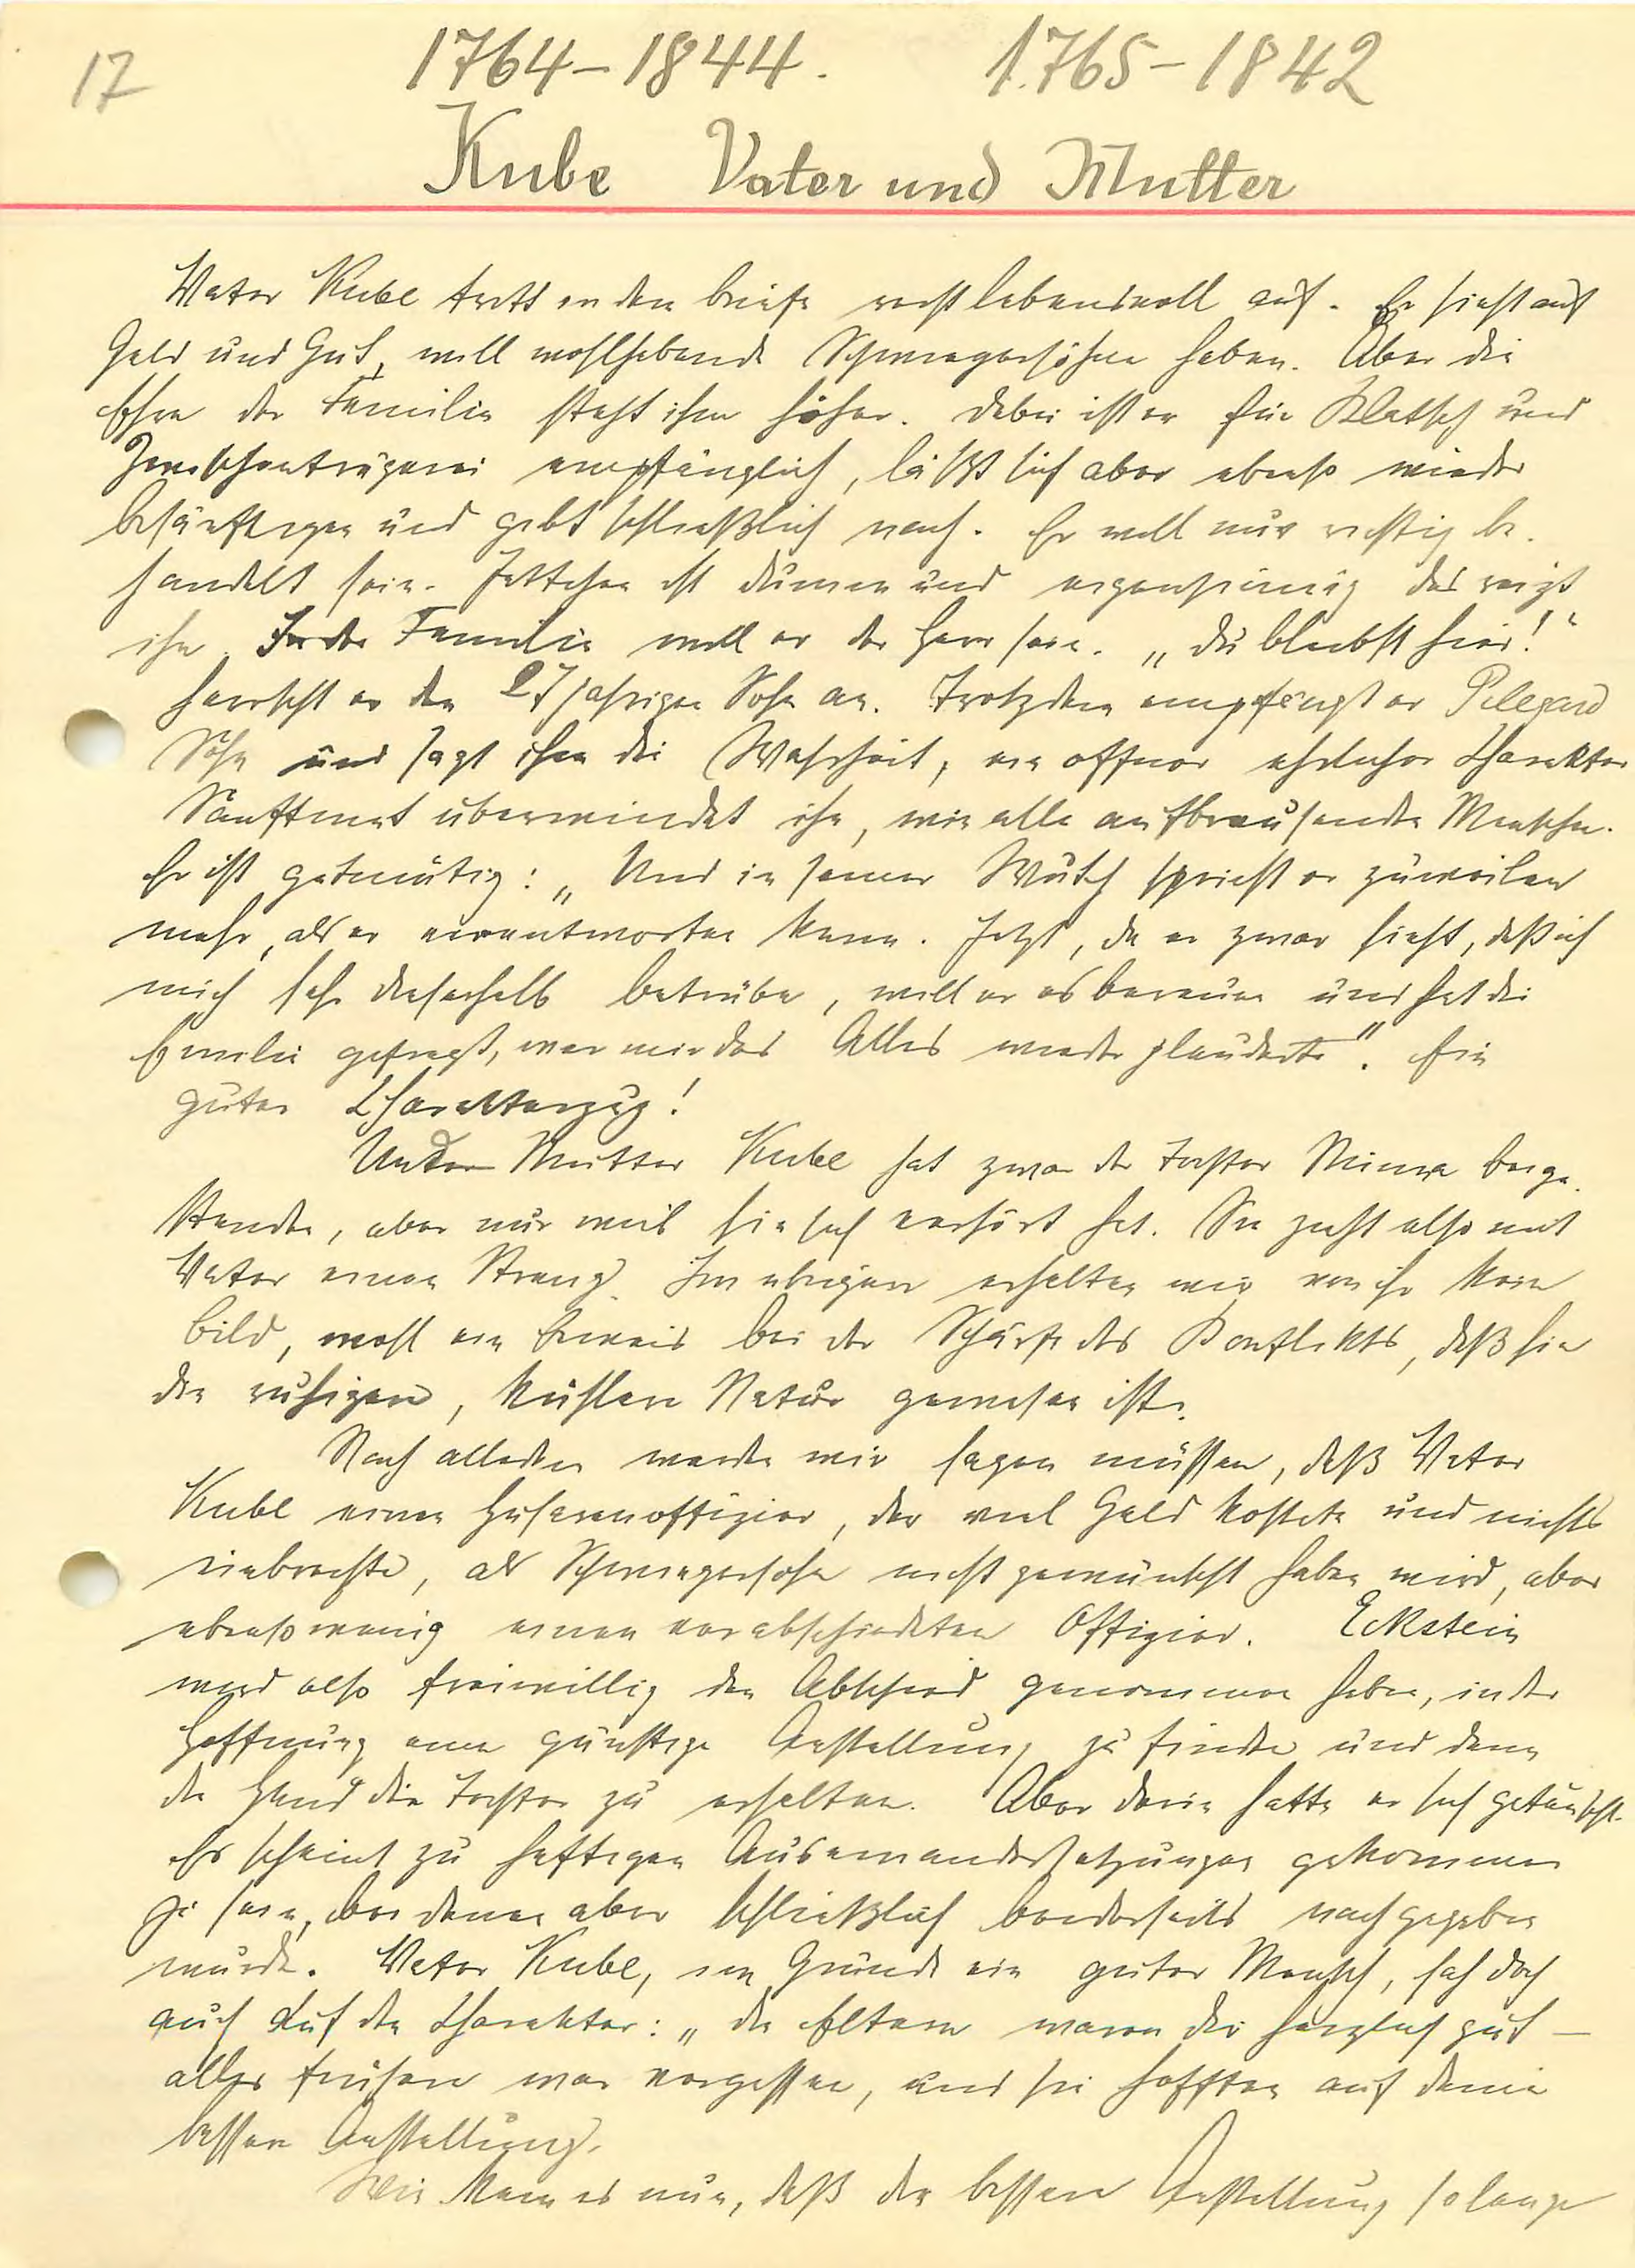 17
1764-1844. 1.765-1842
Kube Vater und Mutter
Vater Kube tritt in den Briefe recht lebensvoll auf. Er sieht auf
Geld und Gut, will wohlhabende Schwiegersöhne haben. Aber die
Ehre der Familie steht ihm höher. Dabei ist er für Klatsch und
Zwischenträgerei empfänglich, läßt sich aber ebenso wieder
besänftigen und gibt schließlich nach. Er will nur richtig be-
handelt sein. Jettchen ist dumm und eigensinnig das reizt
ihn. In der Familie will er der Herr sein. „Du bleibst hier!"
herrscht er den 27jährigen Sohn an. Trotzdem empfängt er
Sohn und sagt ihm die Wahrheit, ein offener ehrlicher Charakter
Sanftmut überwindet ihn, wie alle aufbrausenden Menschen.
Er ist gutmütig: „Und in seiner Wuth spricht er zuweilen
mehr, als er verantworten kann. Jetzt, da er zwar sieht, daß ich
mich sehr dieserhalb betrübe, will er es bereuen und hat die
Emilie gefragt, wer mir das Alles wieder plauderte". Ein
guter Charakterzug!
Mutter Kube hat zwar der Tochter Minna beige-
standen, aber nur weil sie sich verhört hat. Sie zieht also mit
Vater einen Strang. Im übrigen erhalten wir von ihr kein
Bild, wohl ein Beweis bei der Schärfe des Konflikts, daß sie
die ruhigere, kühlere Natur gewesen ist.
Nach alledem werden wir sagen müssen, daß Vater
Kube einen Husarenoffizier, der viel Geld kostete und nichts
einbrachte, als Schwiegersohn nicht gewünscht haben wird, aber
ebensowenig einen verabschiedeten Offizier. Eckstein
wird also freiwillig den Abschied genommen haben, in der
Hoffnung eine günstige Anstellung zu finden und dann
die Hand der Tochter zu erhalten. Aber darin hatte er sich getäuscht.
Es scheint zu heftigen Auseinandersetzungen gekommen
zu sein, bei denen aber schließlich beiderseits nachgegeben
wurde. Vater Kube, im Grunde ein guter Mensch, sah doch
auch auf den Charakter: „die Eltern waren dir herzlich gut —
alles frühere war vergessen, und sie hofften auf deine
bessere Anstellung.
Wie kam es nun, daß die bessere Anstellung so lange